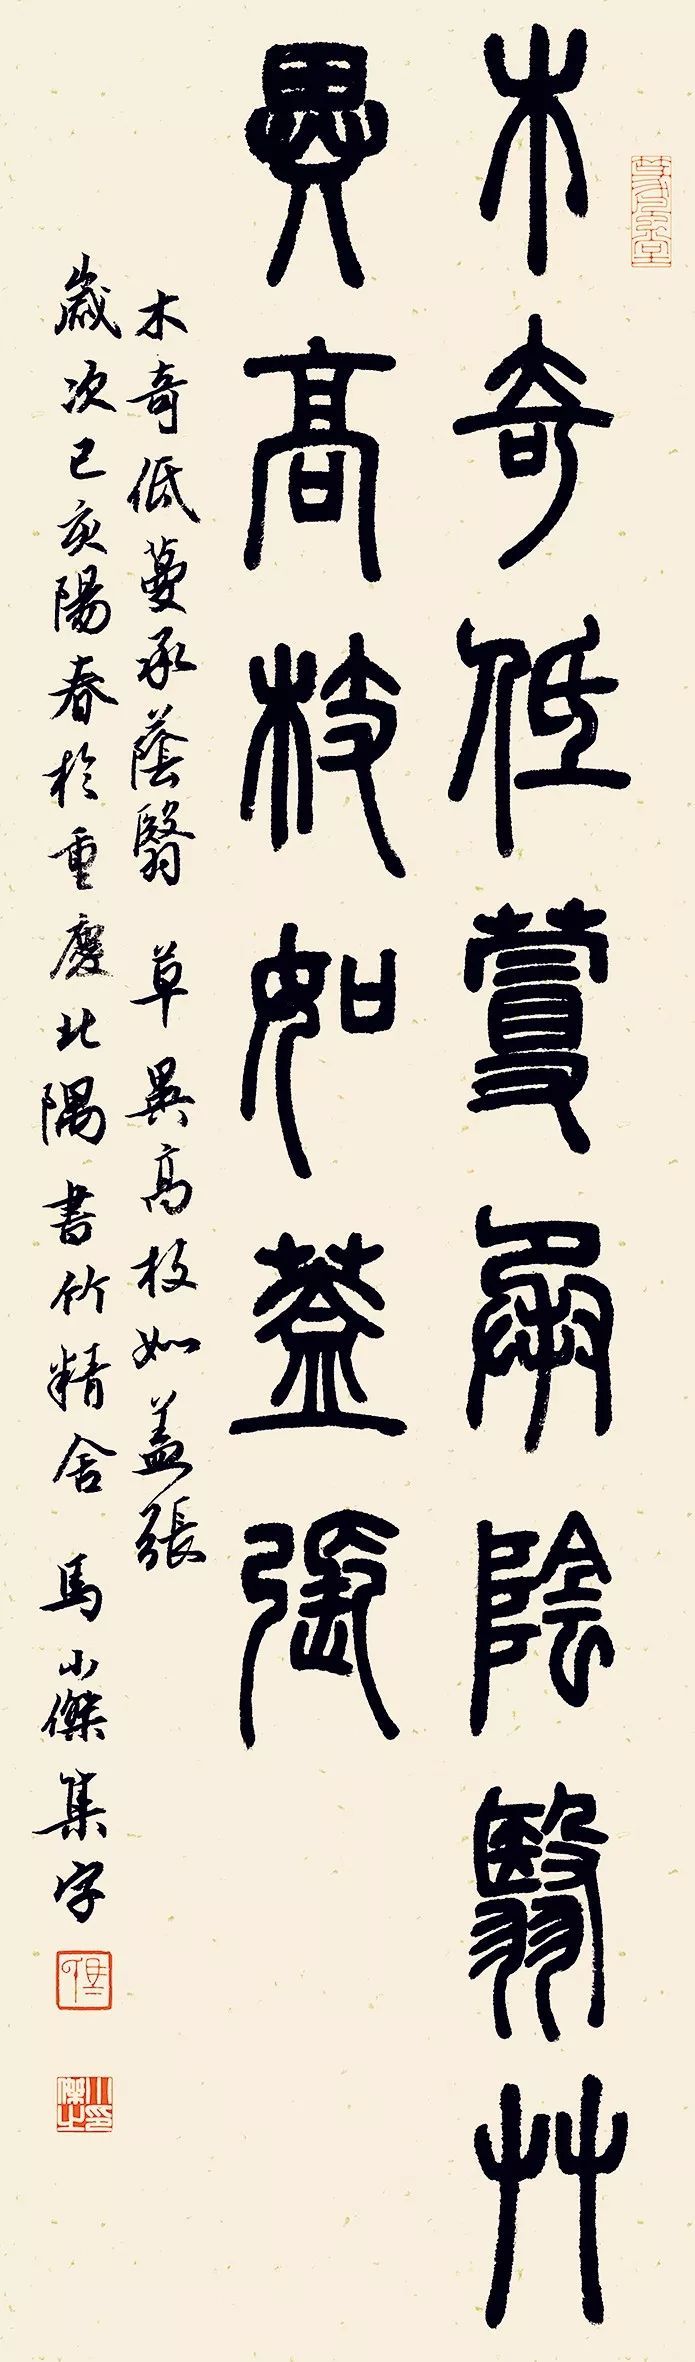 木奇低蔓承陰翳艸
異高枝如蓋張
木奇低蔓承蔭翳 草異高枝如盖張
歲次己亥陽春於重慶北隅書竹精舍 馬小傑集字